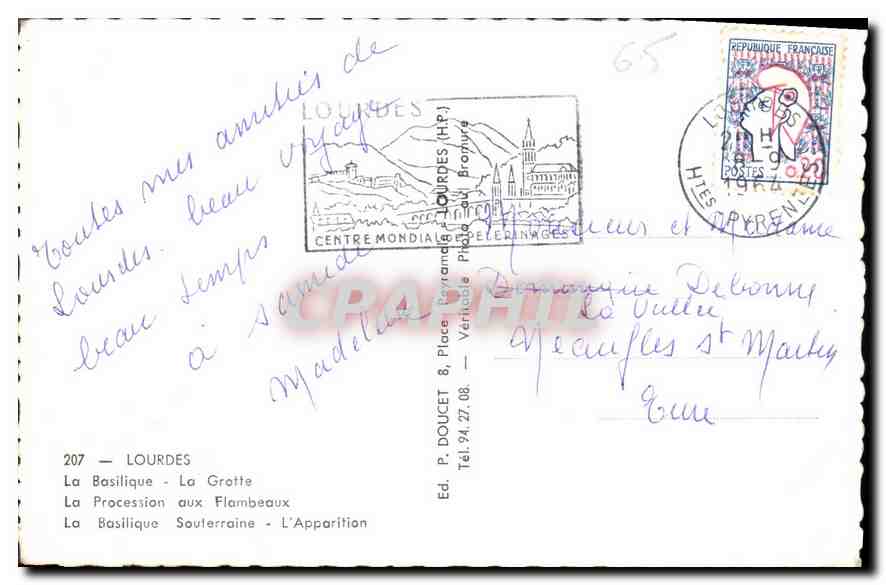 65
Toutes mes amitiés de
Lourdes. beau voyage
beau temps
à samedi
Madeleine
207 — LOURDES
La Basilique - La Grotte
La Procession aux Flambeaux
La Basilique Souterraine - L'Apparition
Ed. P. DOUCET 8, Place Peyramale - LOURDES (H.P.)
Tél. 94.27.08. — Véritable Photo au Bromure
LOURDES
CENTRE MONDIAL DE PELERINAGES
REPUBLIQUE FRANÇAISE
POSTES 0,20
LOURDES
H
8-9
1964
HTES PYRENEES
Monsieur et Madame
Dominique Debonne
La Vallée
Neaufles St Martin
Eure
CPAPHIL